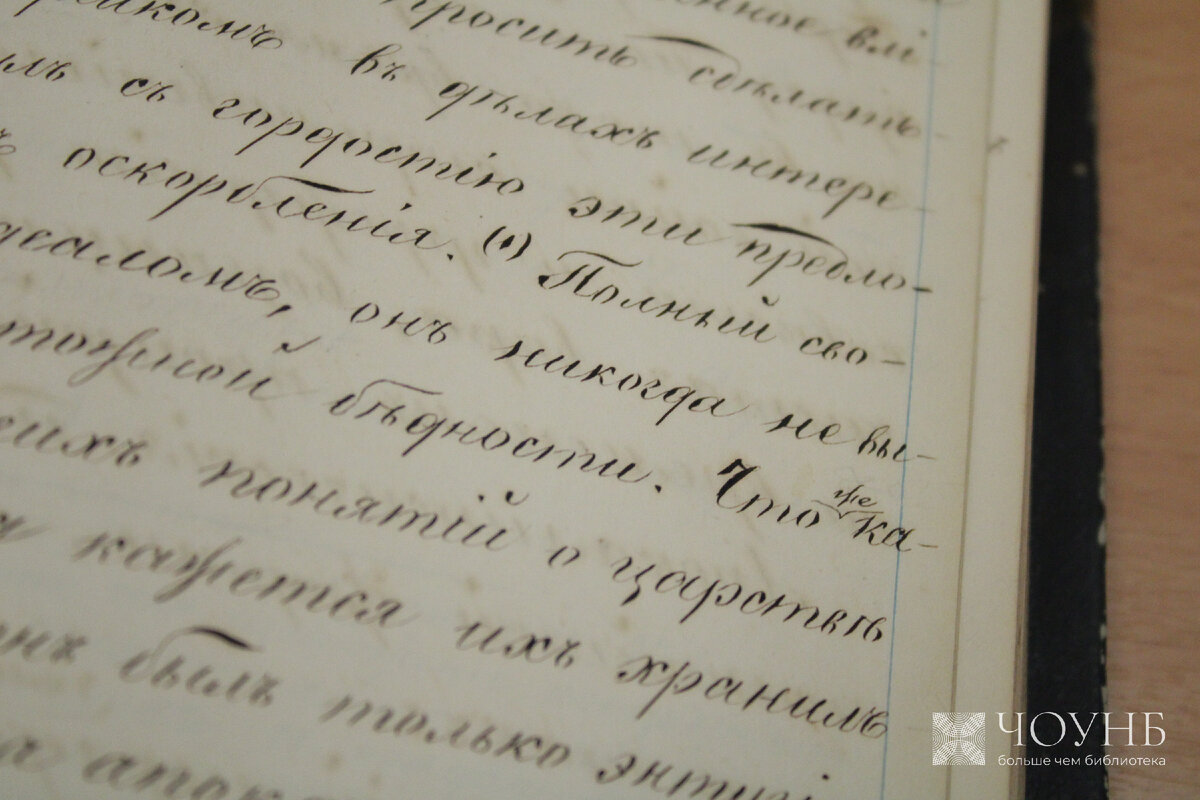 нное влі-
просить сдѣлать-
въ дѣлахъ интере-
съ гордостію эти предло-
оскорбленія. (1) Полный сво-
деаломъ, онъ никогда не вы-
тожной бѣдности. Что же ка-
ихъ понятій о царствѣ
кажется ихъ хранилъ
онъ былъ только энтузі
а апока
ЧОУНБ
больше чем библиотека